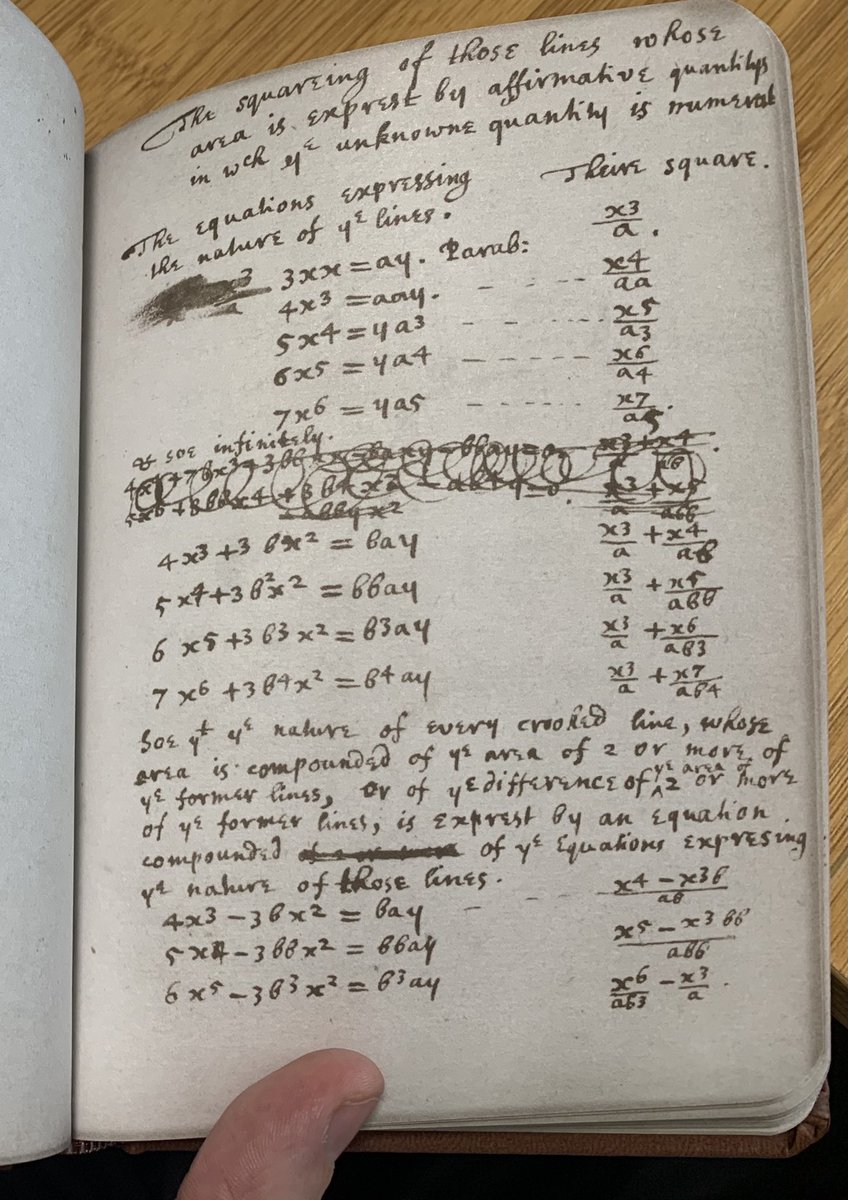 The squareing of those lines whose
area is exprest by affirmative quantitys
in wch ye unknowne quantity is numeral
The equations expressing Theire square.
the nature of ye lines.
3xx = ay. Parab: x3/a.
4x3 = aay. - - - - x4/aa
5x4 = ya3 - - - - x5/a3
6x5 = ya4 - - - - x6/a4
7x6 = ya5 - - - - x7/a5.
& soe infinitely.
4x3 + 3bx2 = bay x3/a + x4/ab
5x4 + 3b2x2 = bbay x3/a + x5/abb
6x5 + 3b3x2 = b3ay x3/a + x6/ab3
7x6 + 3b4x2 = b4ay x3/a + x7/ab4
Soe yt ye nature of every crooked line, whose
area is compounded of ye area of 2 or more of
ye former lines, or of ye difference of ye area of 2 or more
of ye former lines, is exprest by an Equation
compounded of ye Equations expresing
ye nature of those lines.
4x3 - 3bx2 = bay - - - - x4 - x3b/ab
5x4 - 3bbx2 = bbay x5 - x3bb/abb
6x5 - 3b3x2 = b3ay x6/ab3 - x3/a.